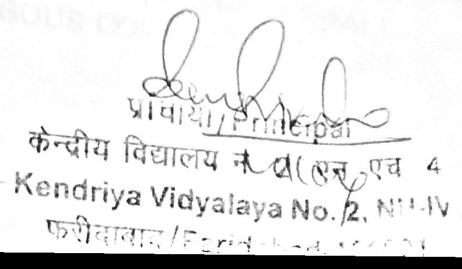 प्राचार्या/Principal
केन्द्रीय विद्यालय एच 4
Kendriya Vidyalaya No. 2, NH-IV
फरीदाबाद/Faridabad